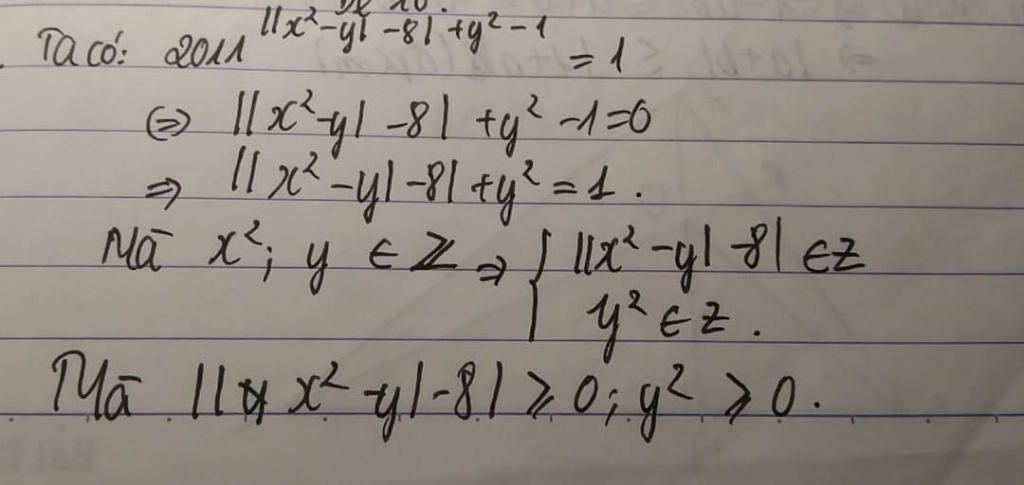 Ta có: 2011^{||x²-y| -8| +y² -1} = 1
⇔ ||x²-y| -8| +y² -1=0
⇒ ||x² -y| -8| +y² = 1.
Mà x²; y ∈ Z ⇒ { ||x² -y| -8| ∈ Z
y² ∈ Z.
Mà || x² -y| -8| ≥ 0; y² ≥ 0.